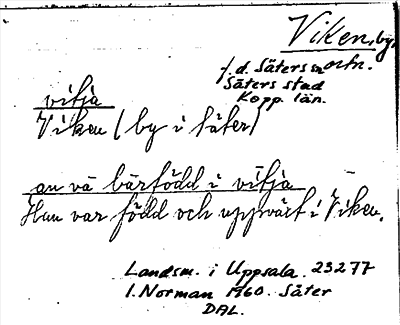 Viken, by,
f. d. Säters sn ortn.
Säters stad
Kopp. län.
vitja
Viken (by i Säter)
an vä bärfödd i vitja
Han var född och uppväxt i Viken.
Landsm. i Uppsala. 23277
I. Norman 1960. Säter
DAL.